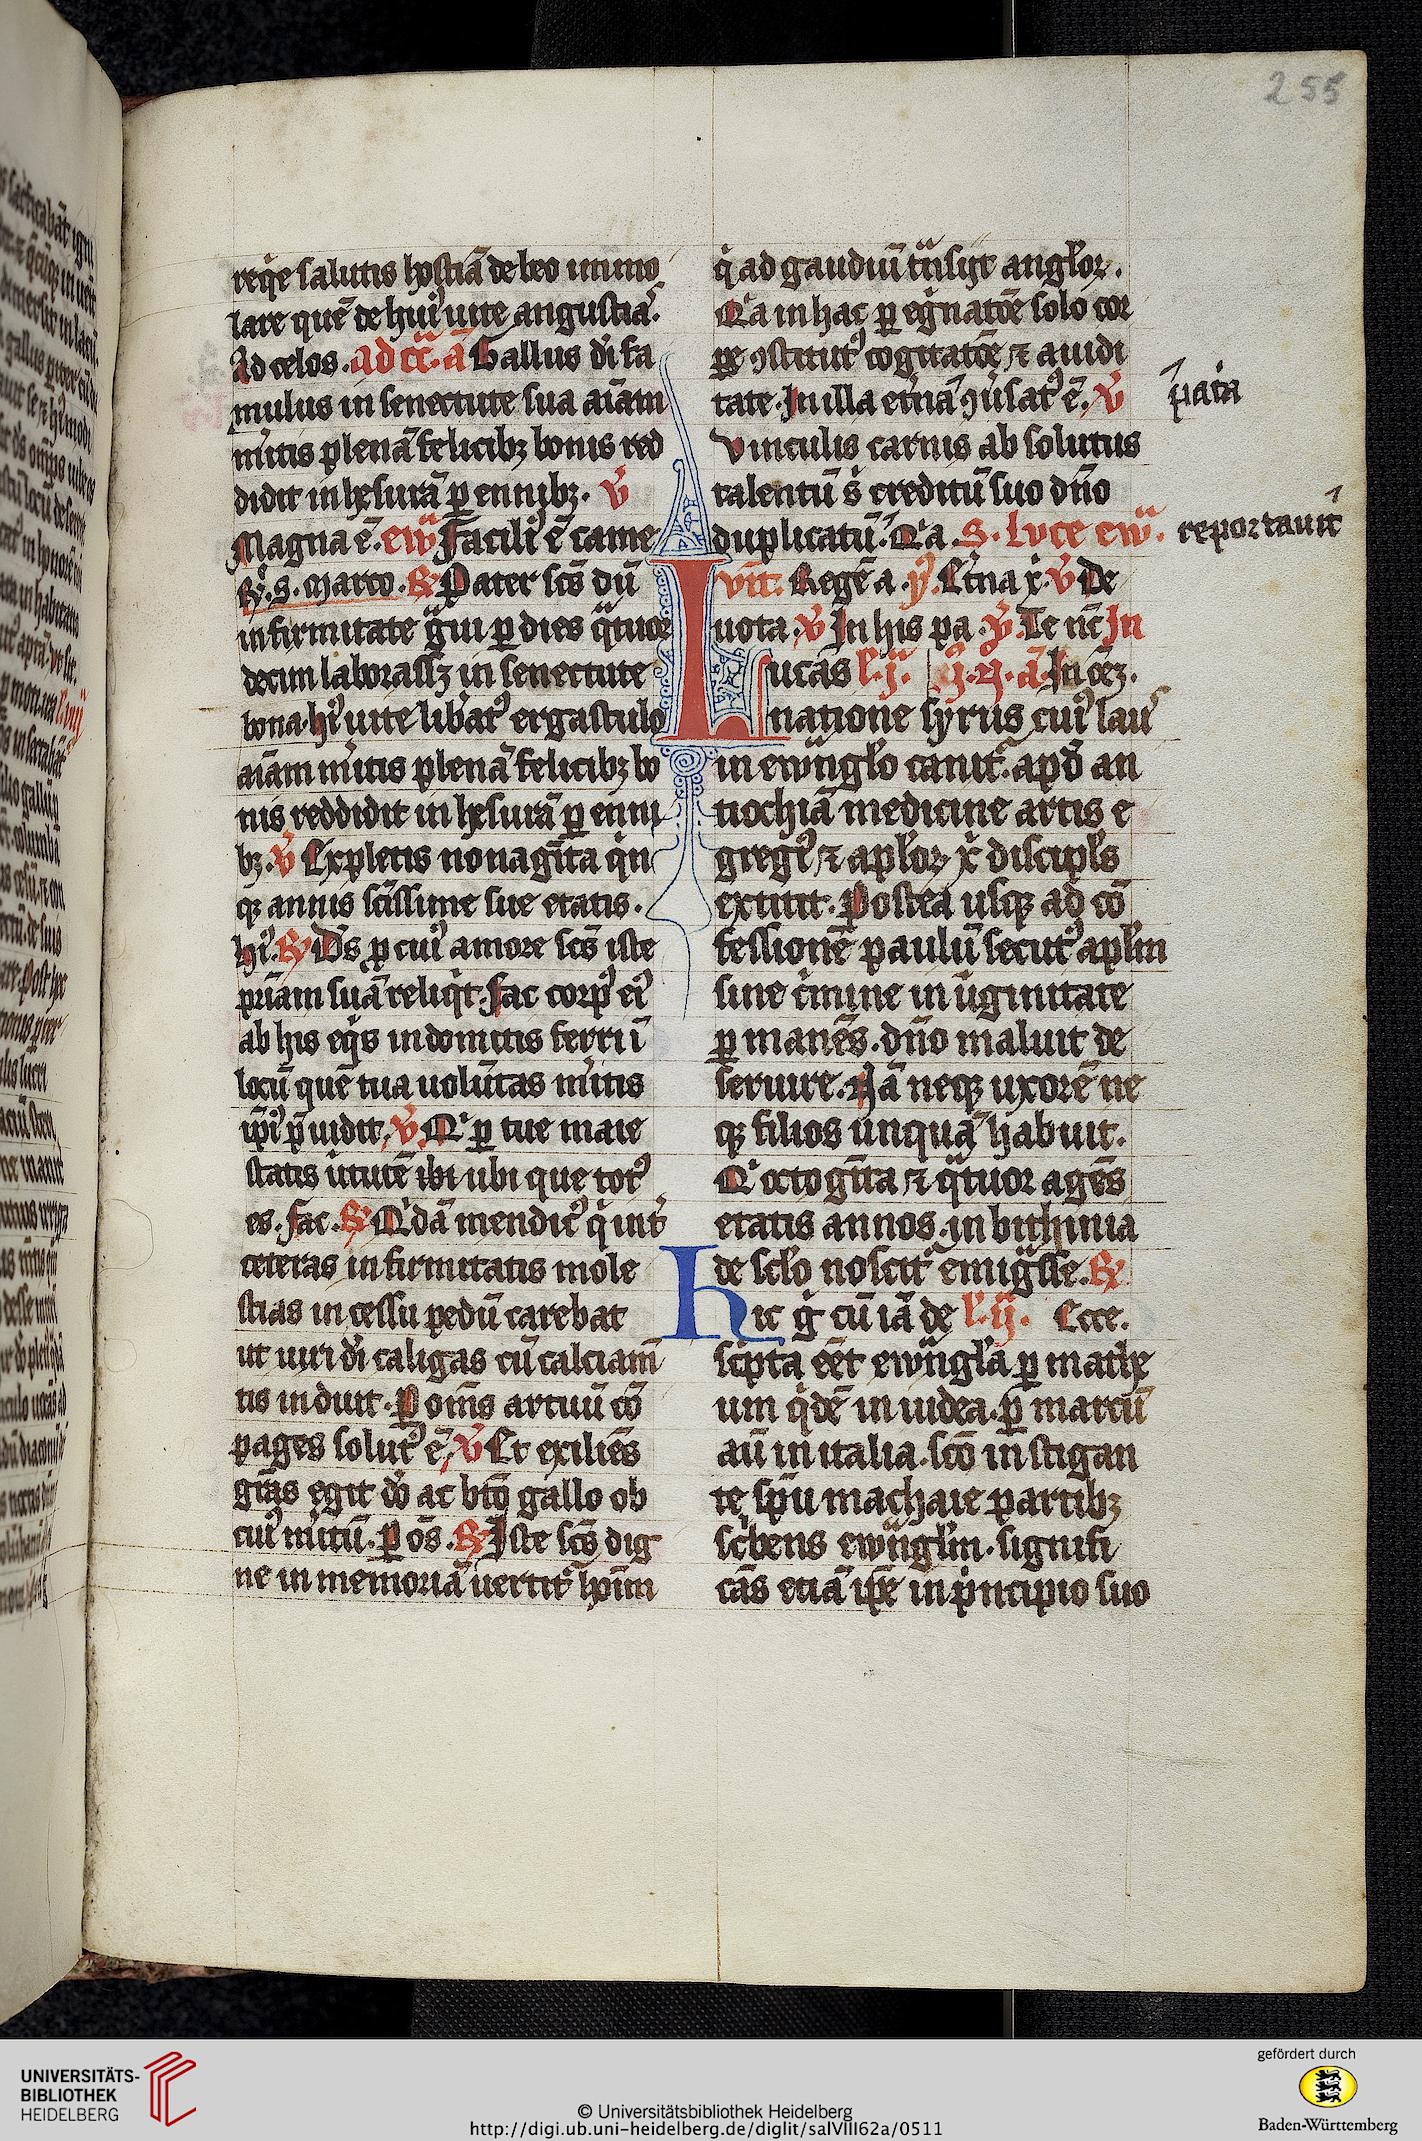 255
reqͥe salutis hostiā de leo immo
lare quē de huiꝰ uite angustia.
Ad celos. ad cc̄. a᷃ Gallus dͥi fa
mulus in senectute sua aīam
mͥitis plenā felicibꝫ bonis red
didit in lesurā ꝑ ennibꝫ. V̄
Magna ē. ew̄ Facili ē came
ꝶ. s. marco. ꝶ Pater sc̄s dū
infirmitate gͣui ꝑ dies qͣtuor
decim laborassꝫ in senectute
bona. hͥ uite liberatꝰ ergastulo
aīam mͥitis plenā felicibꝫ bo
nis reddidit in lesurā ꝑ enni
bꝫ. V̄ Expletis nonagīta qͥn
qꝫ annis sc̄issime sue etatis.
hͥ. ꝶ Ds̄ ꝓ cuiꝰ amore sc̄s iste
pͥriam suā reliqͥt. fac corpꝰ eiꝰ
ab his eqͥs indomitis ferri ī
locū quē tua uolūtas mͥitis
ip̄iꝰ p̄uidit. V̄ Qͥ ꝑ tue maie
statis uͥtutē ibi ubi que totꝰ
es. fac. ꝶ Qͥdā mendicꝰ qͥ int̄
ceteras infirmitatis mole
stias incessu pedū carebat
ut uiri dͥi caligas cū calciam̄
tis induit. P om̄s artuū cō
pages solutꝰ ē. V̄ Et exiliēs
gr̄as egit dō ac bt̄o gallo ob
cuiꝰ mͥitū. P os̄. ꝶ Iste sc̄s dig
ne in memoriā uertitͬ hoīm
qͥ ad gaudiū trͣnsijt angl̄oꝝ.
Qͥa in hac ꝑ egͥnatōe solo cor
ꝑe ꝯstitutꝰ cogitatōe ⁊ auidi
tate. In illa et̄nā ꝯuͥsatꝰ ē. V̄
p̄aīa
Vinculis carnis ab solutus
talentū sͥ creditū suo dn̄o
duplicatū. Qͥa. S. Luce ew̄.
reportauit
vīt. Regē a. ẏ. Et̄na x̄. V̄ De
uota. V̄ In his pa. ẏ. Te nc̄ In
Lucas l'. j. j. N. a᷃. In oēꝫ.
natione syrus cuiꝰ lauꝰ
in ewͣngl̄o canitͬ. apd̄ an
tiochiā medicine artis e
gregiꝰ ⁊ apl̄oꝝ xͥ discipl̄s
extitit. Postea usqꝫ ad cō
fessionē paulū secutꝰ apl̄m
sine cͥmine in uͥginitate
ꝑ manēs. dn̄o maluit de
seruire. Nā neqꝫ uxorē ne
qꝫ filios unquā habuit.
Qͥ octogīta ⁊ qͣtuor agēs
etatis annos. in bithinia
de scl̄o noscitͬ emigͣsse. ꝶ
Hic gͥ cū iā de l'. ij. Ecce.
scͥpta eēt ewͣngl̄a ꝑ mathe
um qͥdē in iudea. ꝑ marcū
aū in italia. sc̄o instigan
te sp̄u machaie partibꝫ
scͥbens ewͣngl̄m. signifi
cās etiā ip̄e in pͥncipio suo
UNIVERSITÄTS-
BIBLIOTHEK
HEIDELBERG
© Universitätsbibliothek Heidelberg
http://digi.ub.uni-heidelberg.de/diglit/salVIII62a/0511
gefördert durch
Baden-Württemberg